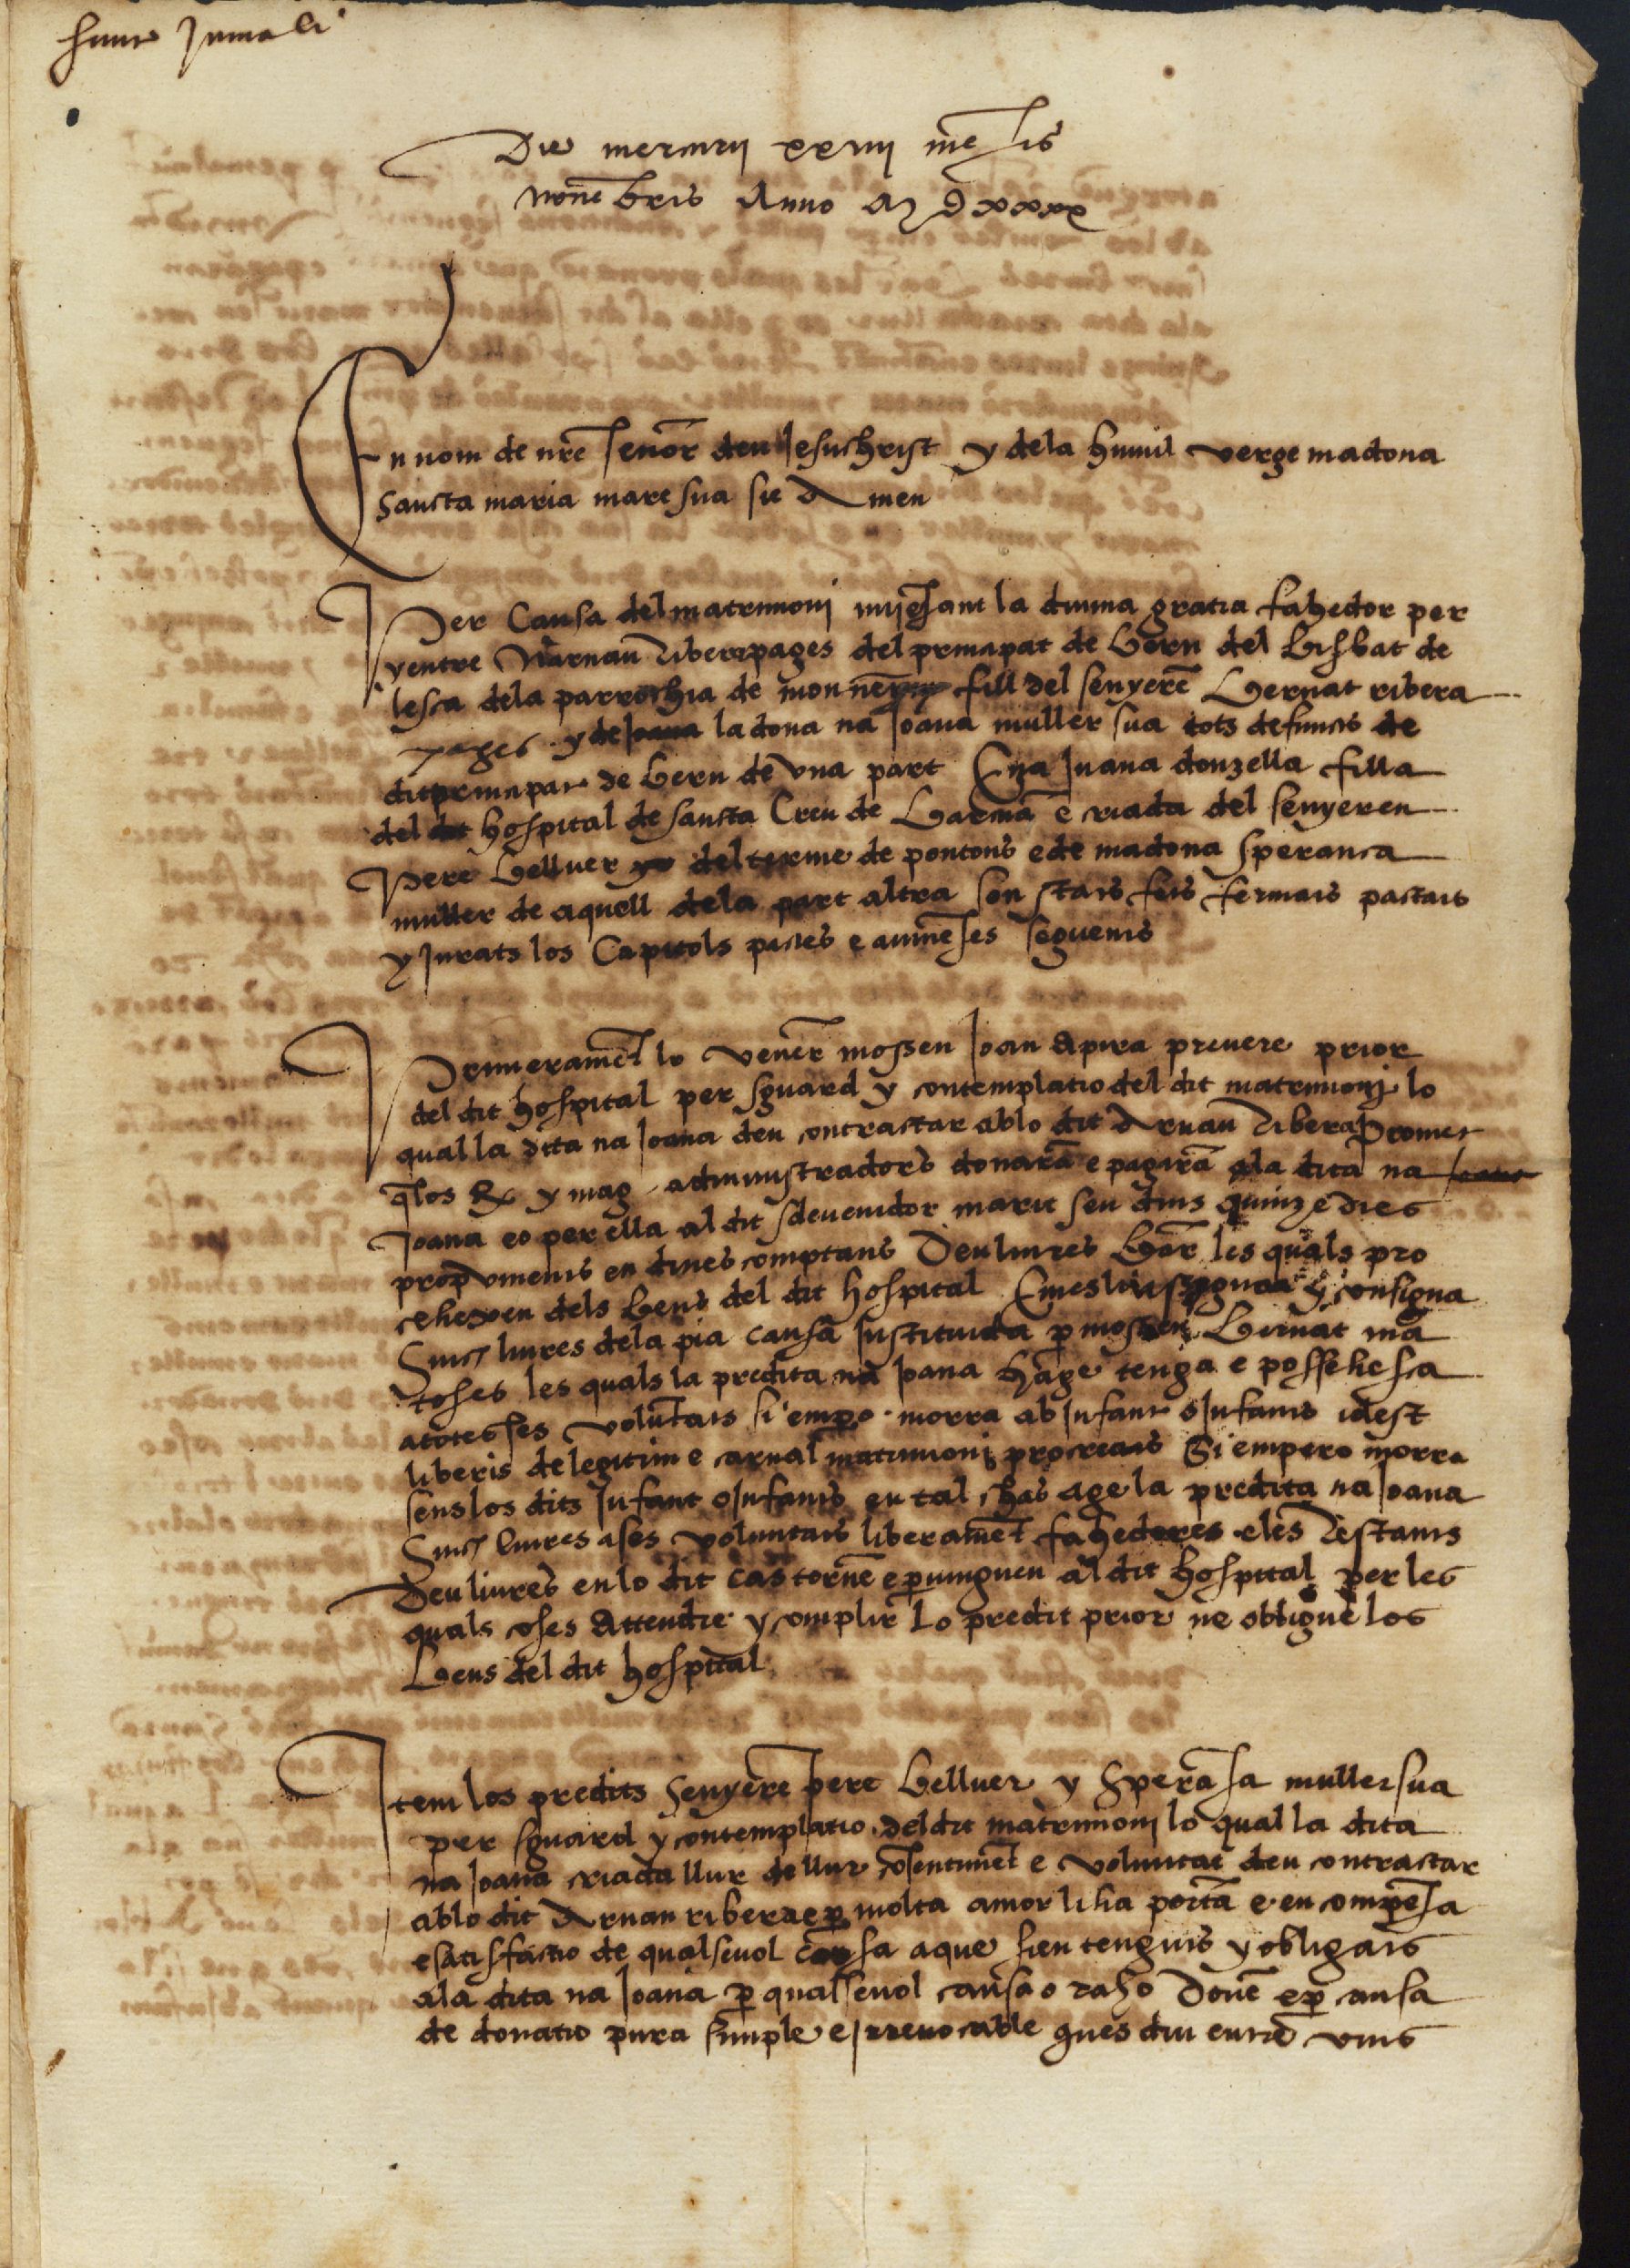 sunt Jnmali
Die mercurii xxiiii mēsis
nouēbris Anno M D xxxx
En nom de nr̄e senōr deu Jesuchrist y dela humil verge madona
Sancta maria mare sua sie Amen
Per Causa del matrimoni mijēsant la diuina gratia fahedor per
y entre Narnau Ribera pages del principat de bern del bisbat de
lesca dela parrochia de fill del senyerē bernat ribera
pages y de la dona na Joana muller sua tots defuncts de
dit principat de bern de vna part E na Juana donzella filla
del hospital de sancta Creu de barcīa e criada del senyer en
Pere bellver del terme de pontons e de madona speransa
muller de aquell dela part altra son stats fets fermats pactats
y Jurats los Capitols pactes e auinēses seguents
Primeramēt lo venēr mossen Joan Apira preuere prior
del dit hospital per sguard y contemplatio del dit matrimonj lo
qual la dita na Joana deu contractar ab lo dit Arnau Ribera Promet
q̄ los Rx y mag administradors donarā e pagarā ala dita na Joana
Joana eo per ella al dit sdeuenidor marit seu dins quinze dies
prop vinents en dines comptans Deu liures bār les quals pro
cehexen dels bens del dit hospital E mes li y consigna
Sinch liures dela pia causa Instituida p mossen bernat ma
toses les quals la predita na Joana hage tenga e possehesca
a totes ses volūtats si emp̄o morra ab Infant o Infants idest
liberis de legitim e carnal matrimonj procreats Si empero morra
sens los dits Infant o Infants en tal chas age la predita na Joana
Sinch liures a ses voluntats liberamēt fahedores e les Restants
Deu liures en lo dit cas tornē e p̱uinguen al dit hospital per les
quals coses Attendre y complir Lo predit prior ne obligue los
bens del dit hospital
Item los predits senyere pere bellver y sperāsa muller sua
per sguard y contemplatio del dit matrimonj lo qual la dita
na Joana criada llur de llur cōsentimēt e voluntat deu contractar
ab lo dit Arnau ribera e p̱ molta amor li ha portā e en compēsa
e satisfactio de qualseuol cosa a que sien tenguts y obligats
ala dita na Joana p̱ qualseuol causa o raho Donē e p̱ causa
de donatio pura simple e Jrreuocable q̄ues diu entre vius